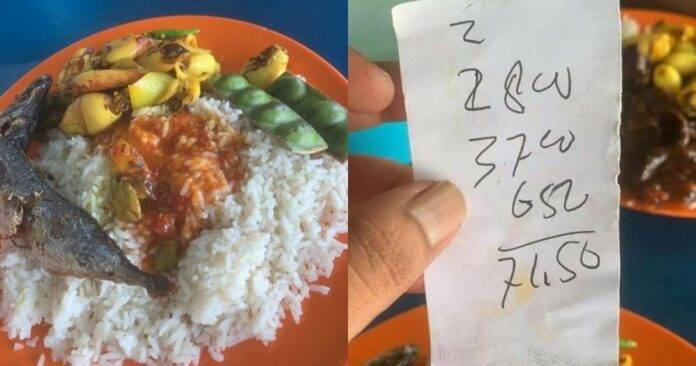 2
2800
3700
650
71.50